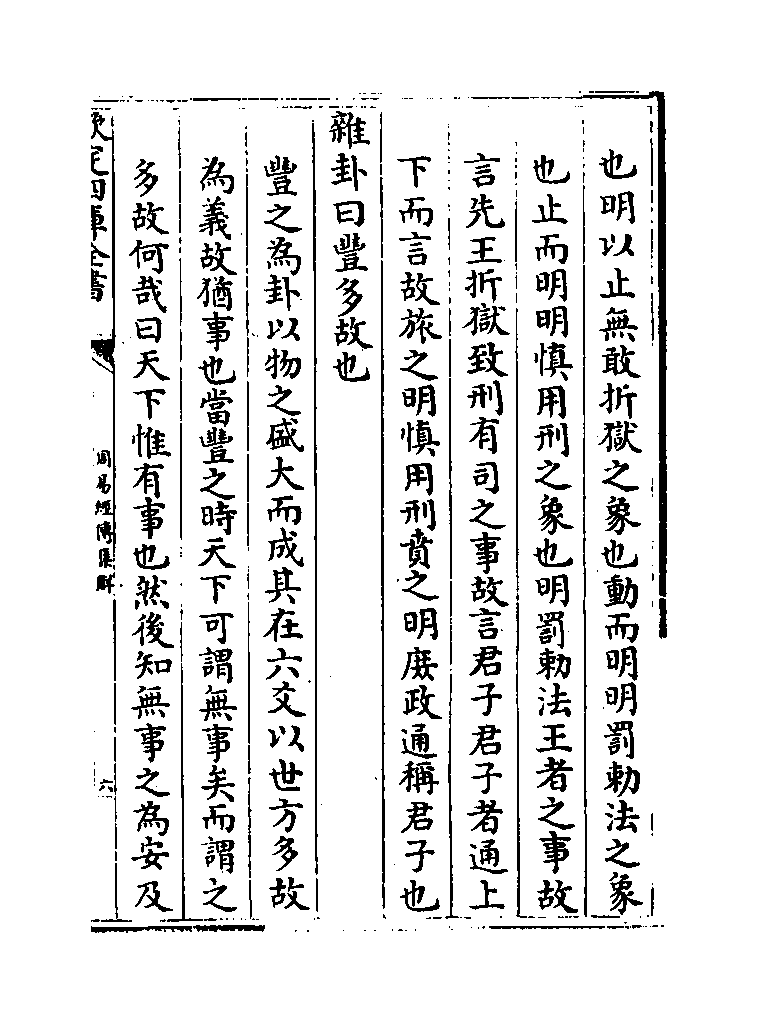 也明以止無敢折獄之象也動而明明罰勅法之象
也止而明明慎用刑之象也明罰勅法王者之事故
言先王折獄致刑有司之事故言君子君子者通上
下而言故旅之明慎用刑賁之明庶政通稱君子也
雜卦曰豐多故也
豐之為卦以物之盛大而成其在六爻以世方多故
為義故猶事也當豐之時天下可謂無事矣而謂之
多故何哉曰天下惟有事也然後知無事之為安及
欽定四庫全書
周易經傳集解
六